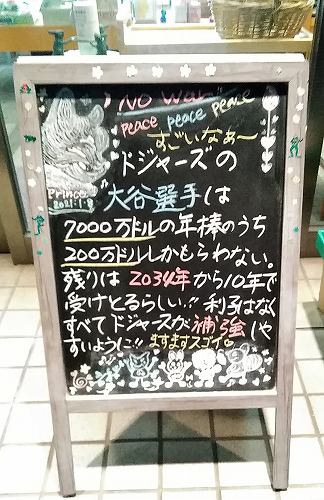 No war
peace peace peace
すごいなぁ〜
ドジャーズの
大谷選手は
7000万ドルの年棒のうち
200万ドルしかもらわない。
残りは2034年から10年で
受けとるらしい!! 利子はなく
すべてドジャースが補強しや
すいように!! ますますスゴイ♡
Prince
2021.1.8